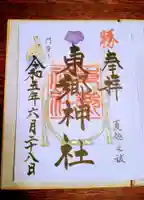 勝
奉拝
東郷神社
夏越之祓
令和五年六月二十八日